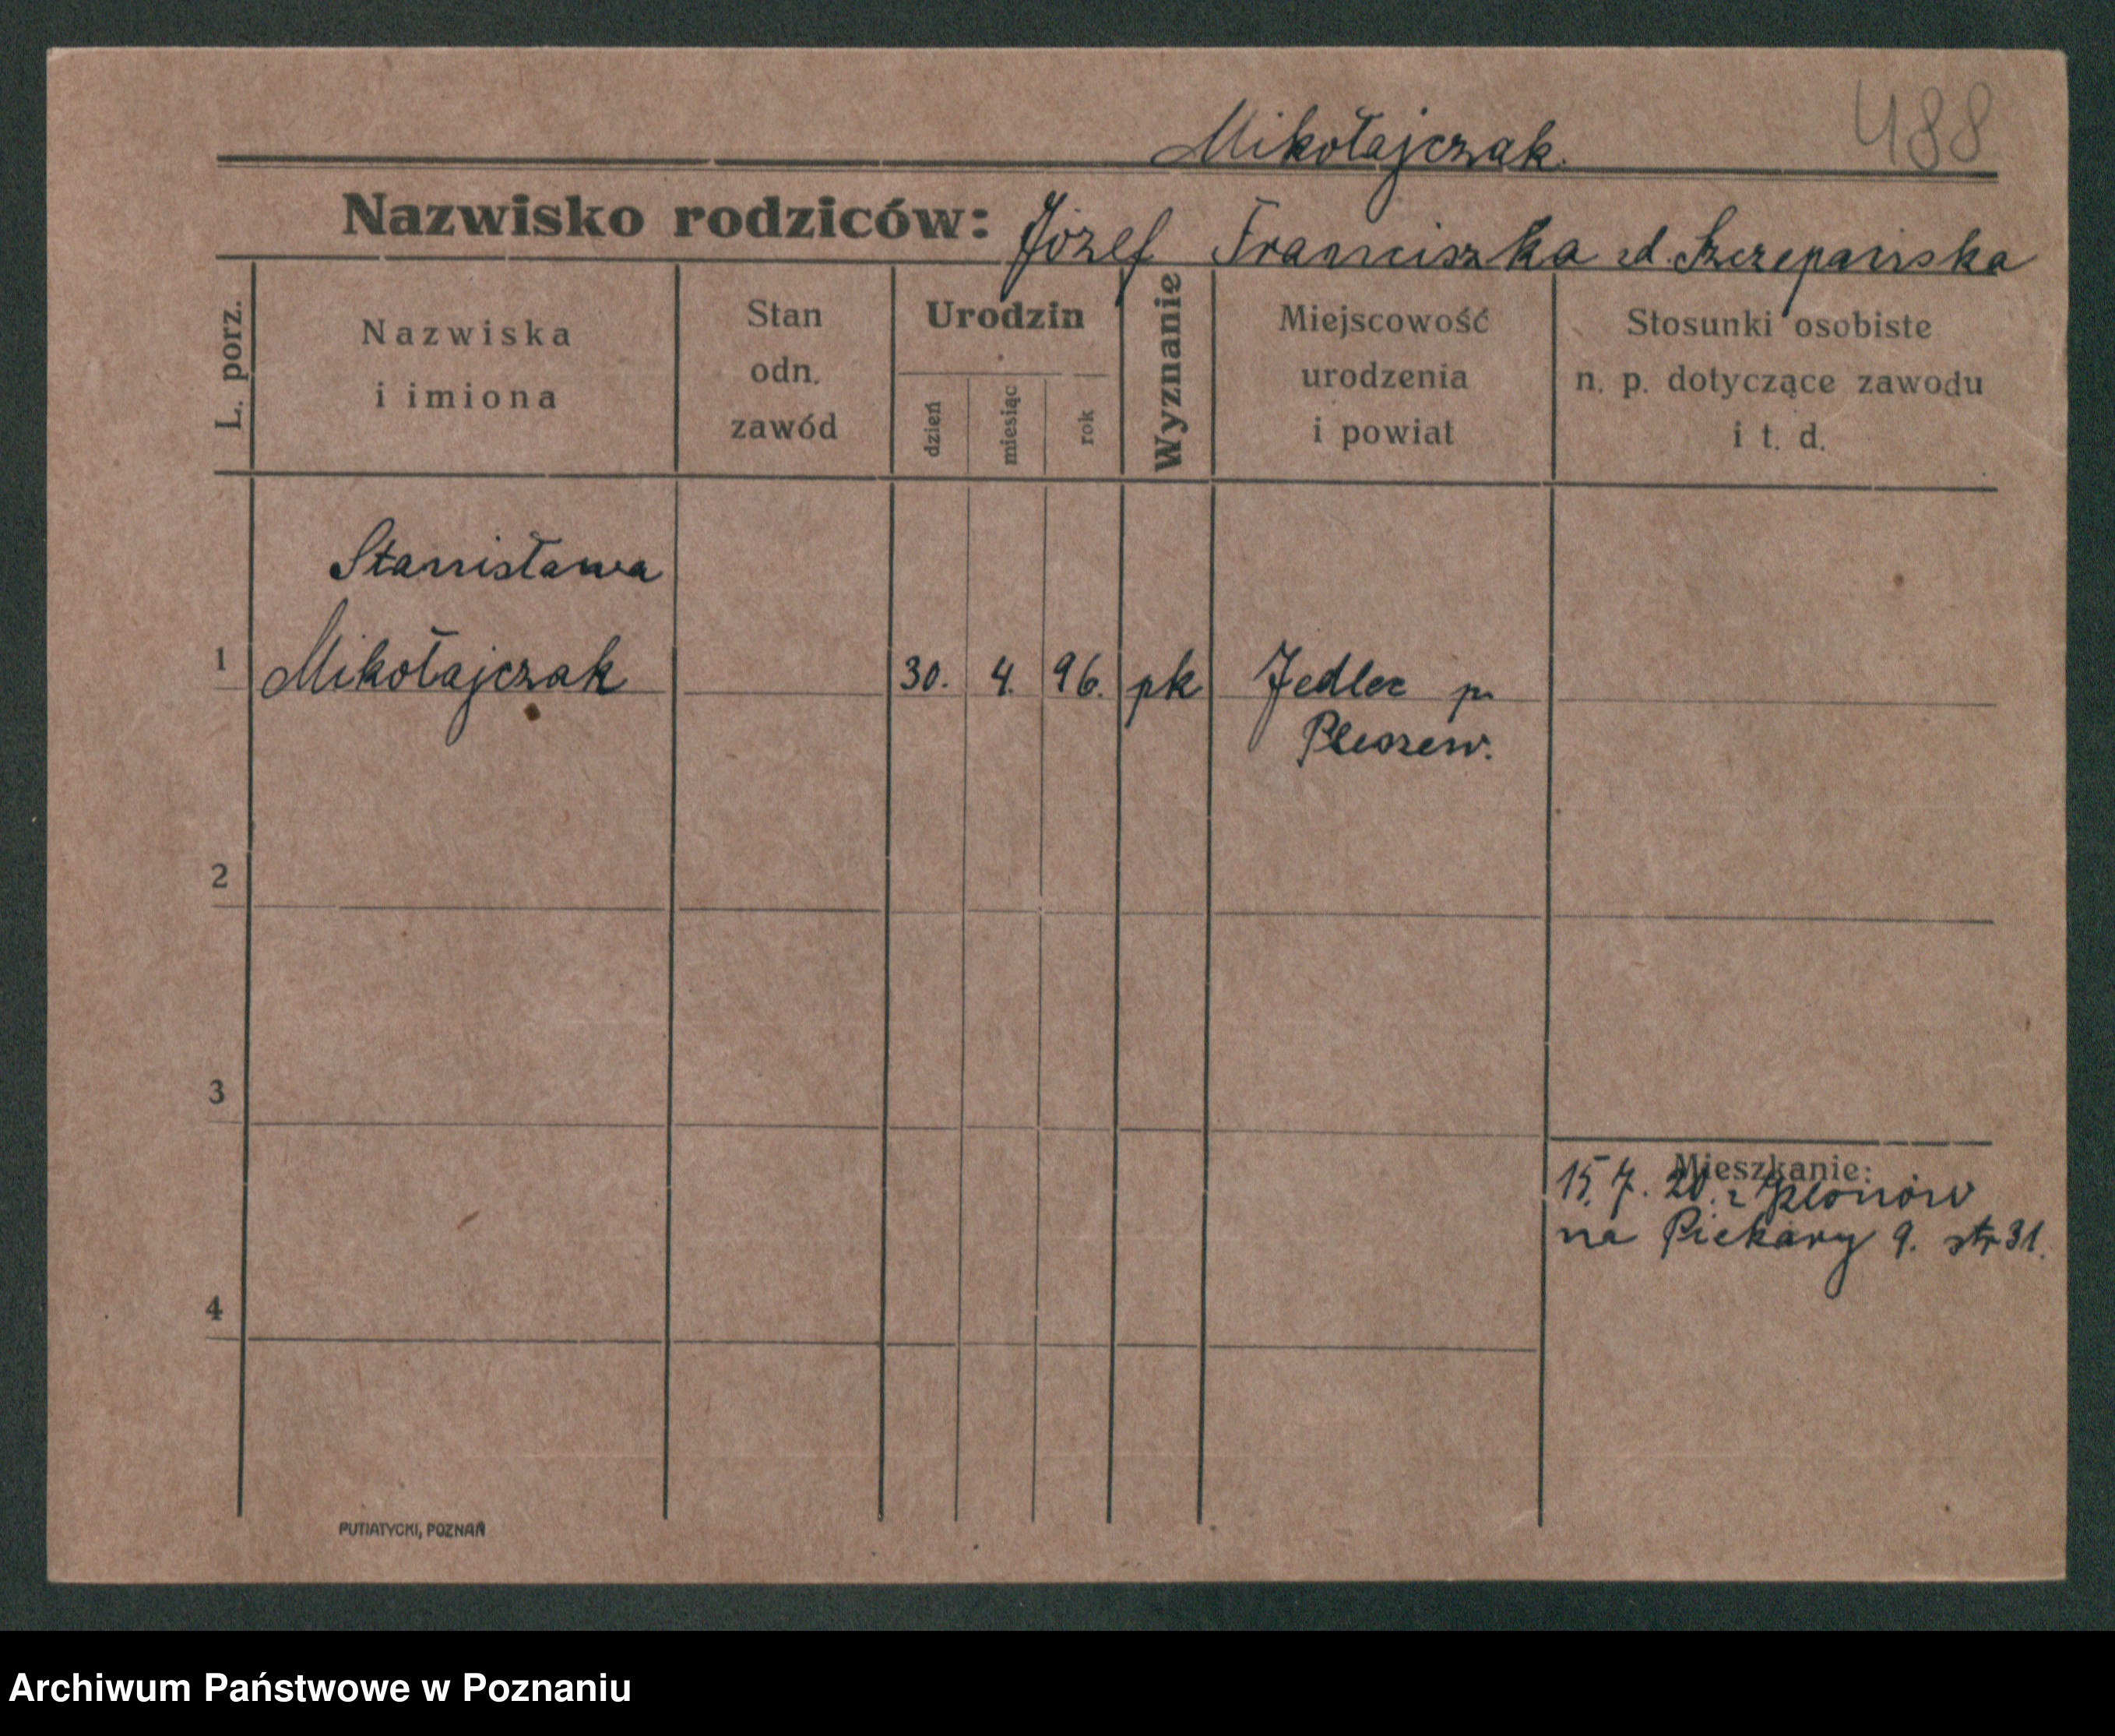 488
Mikołajczak.
Nazwisko rodziców: Józef Franciszka zd. Szczepańska
L. porz.
Nazwiska
i imiona
Stan
odn.
zawód
Urodzin
dzień
miesiąc
rok
Wyznanie
Miejscowość
urodzenia
i powiat
Stosunki osobiste
n. p. dotyczące zawodu
i t. d.
Stanisława
1 Mikołajczak 30. 4. 96. pk Jedlec p.
Pleszew.
2
3
Mieszkanie:
15. 7. 20. z
na Piekary 9. str 31.
4
PUTIATYCKI, POZNAŃ
Archiwum Państwowe w Poznaniu